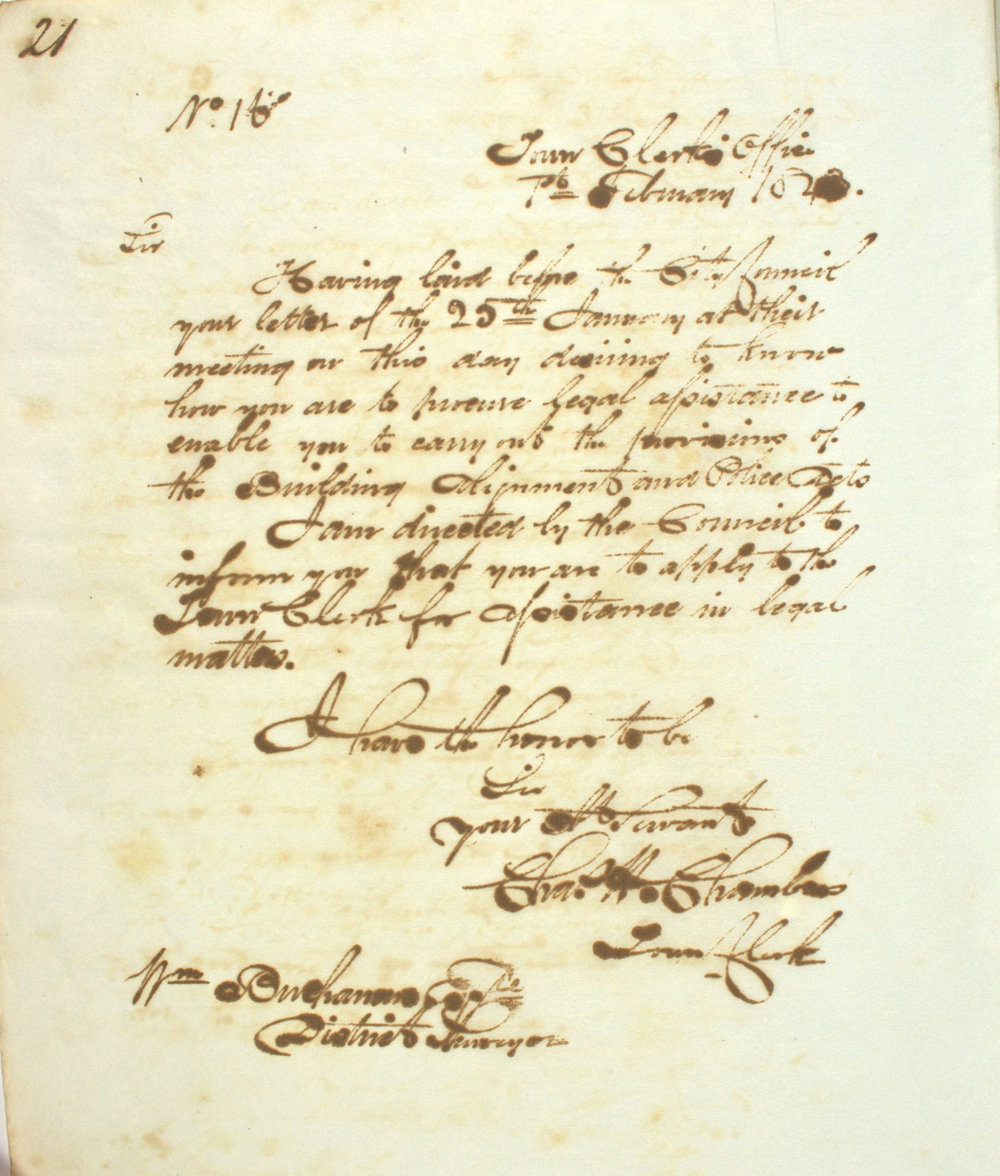 21
No. 18
Town Clerk's Office
7th February 1843.
Sir
Having laid before the City Council
your letter of the 25th January at their
meeting on this day desiring to know
how you are to procure legal assistance to
enable you to carry out the provisions of
the Building Alignment and Police Acts
I am directed by the Council to
inform you that you are to apply to the
Town Clerk for assistance in legal
matters.
I have the honor to be
Sir
your Obt. Servant
Chas. H. Chambers
Town Clerk
Wm Buchanan Esqre
District Surveyor